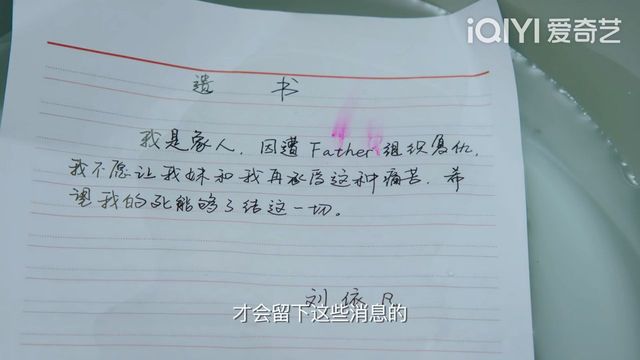 iQIYI 爱奇艺
遗 书
我是象人，因遭Father组织复仇，
我不愿让我妹和我再承受这种痛苦，希
望我的死能够了结这一切。
刘依
才会留下这些消息的